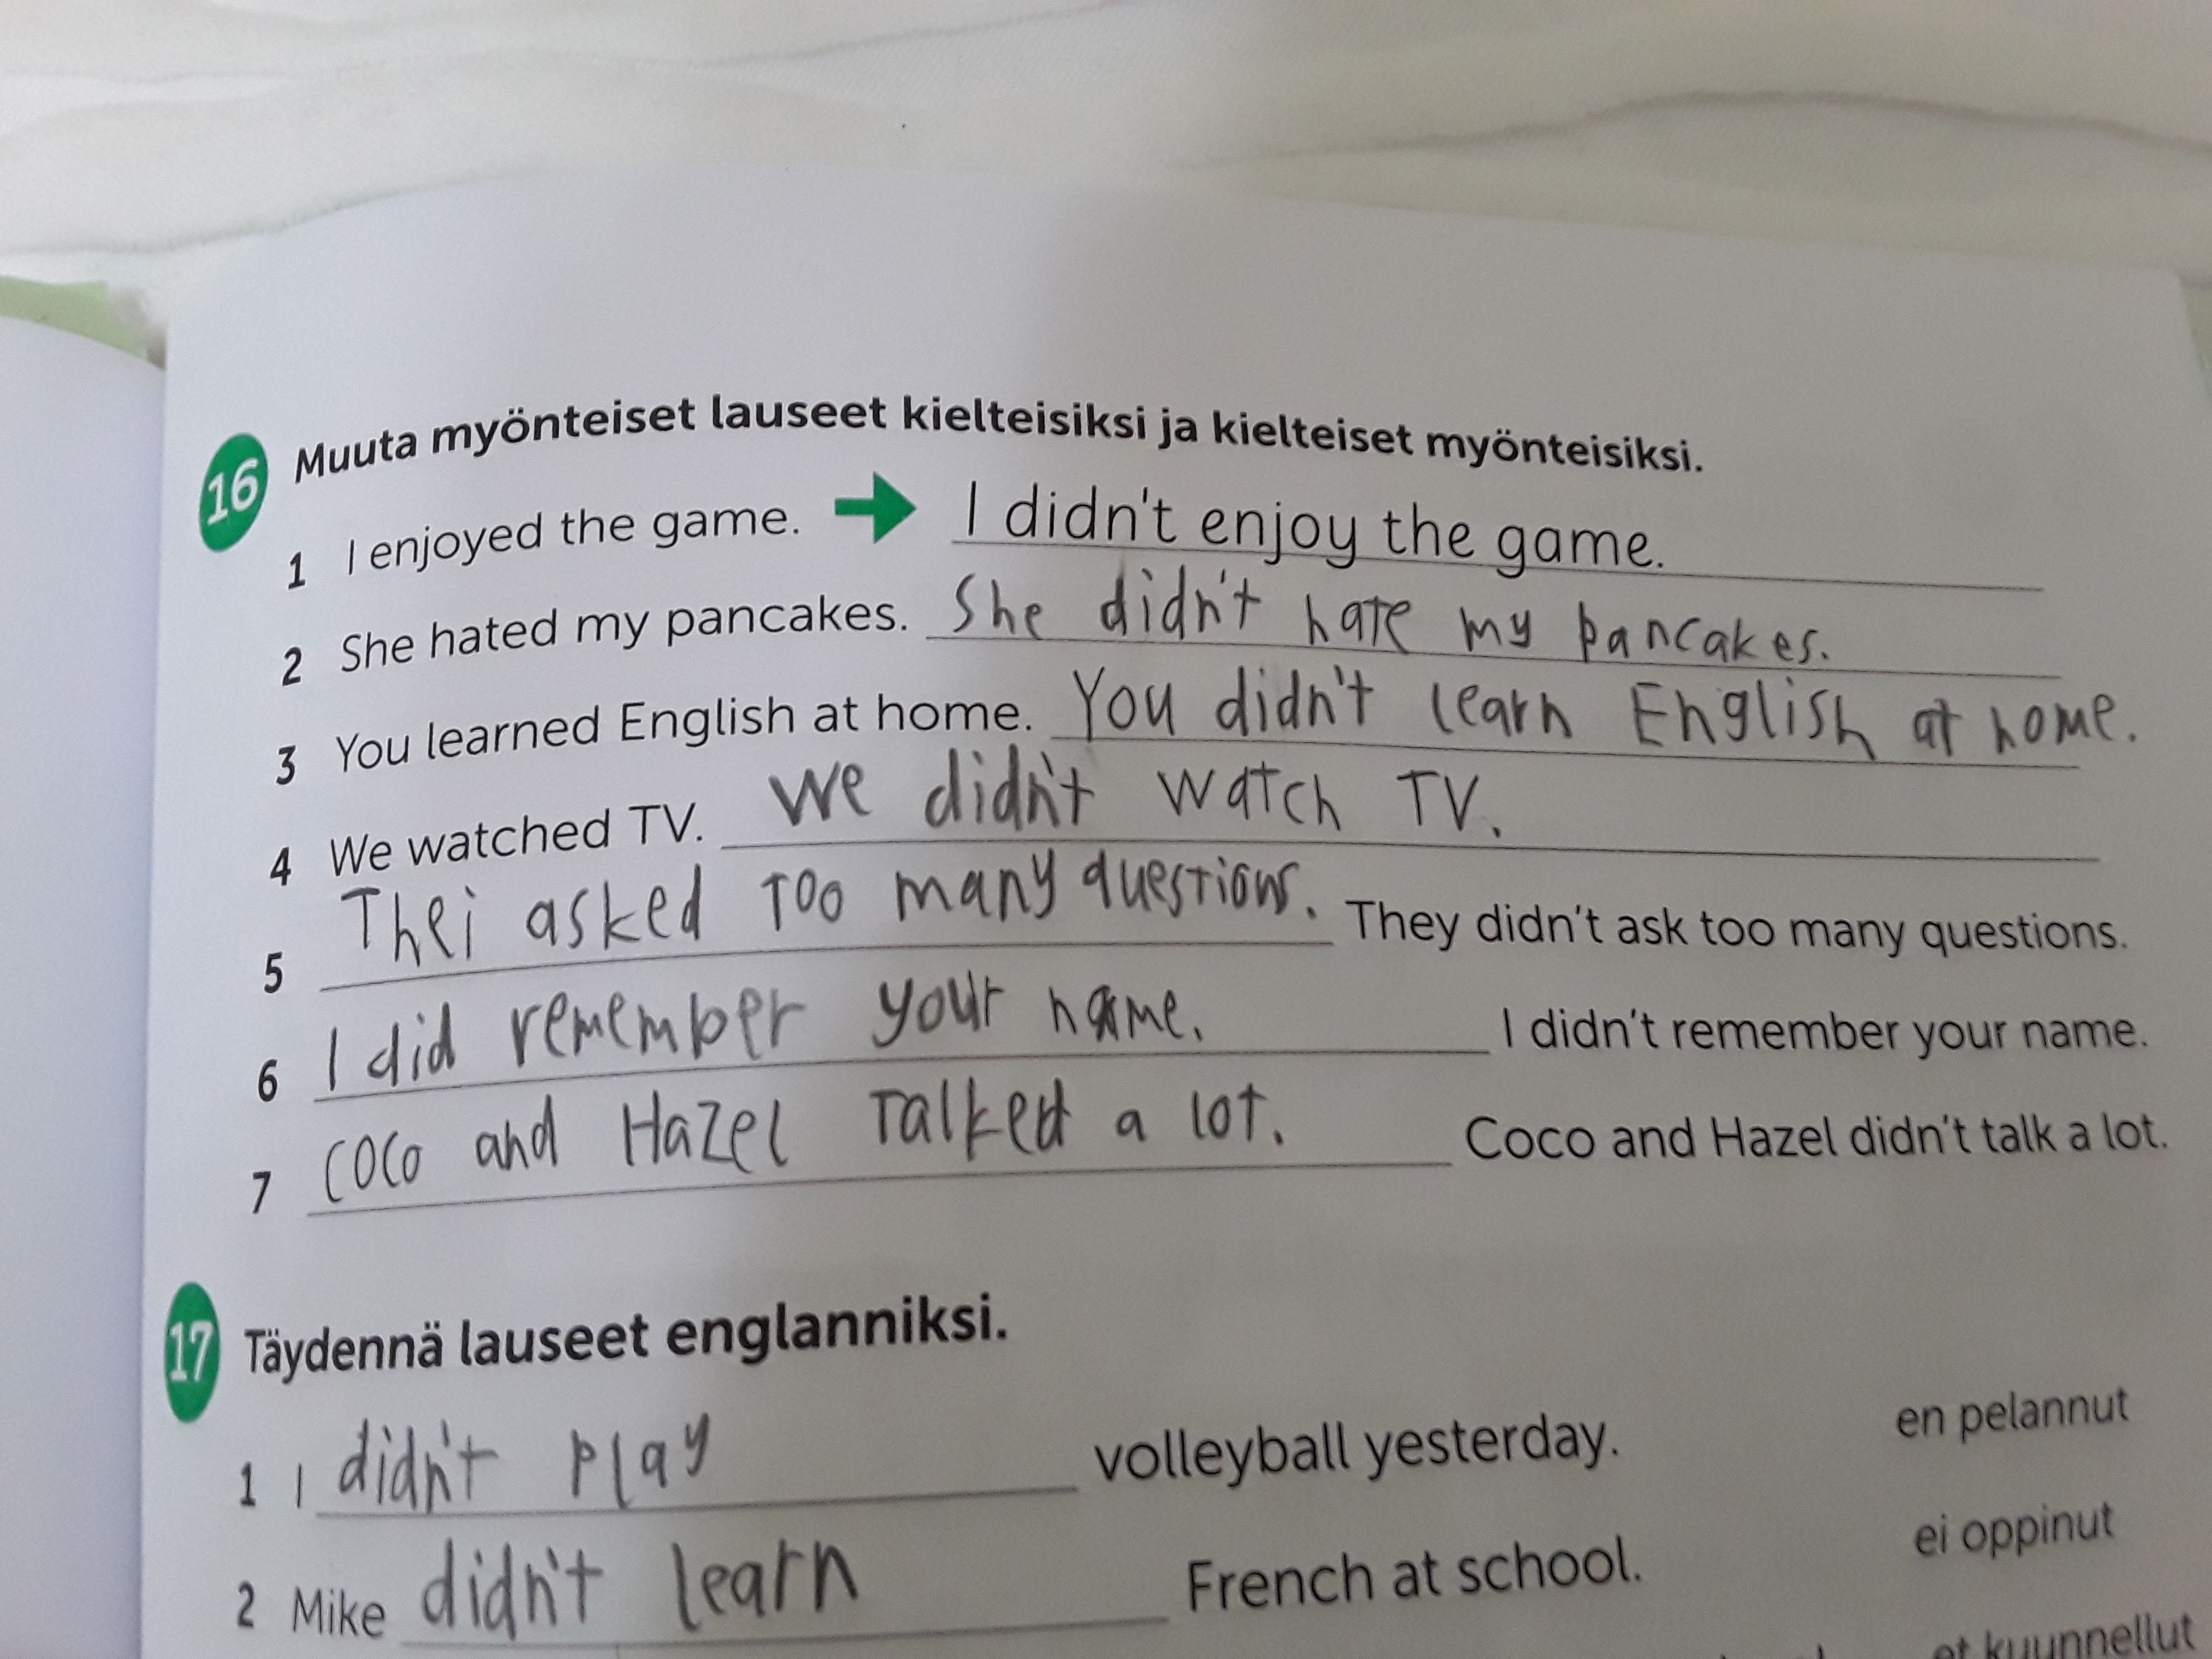 16 Muuta myönteiset lauseet kielteisiksi ja kielteiset myönteisiksi.
1 I enjoyed the game. I didn't enjoy the game.
2 She hated my pancakes. She didn't hate my pancakes.
3 You learned English at home. You didn't learn English at home.
4 We watched TV. We didn't watch TV.
5 Thei asked too many questions. They didn't ask too many questions.
6 I did remember your name. I didn't remember your name.
7 Coco and Hazel talked a lot. Coco and Hazel didn't talk a lot.
17 Täydennä lauseet englanniksi.
1 I didn't play volleyball yesterday. en pelannut
2 Mike didn't learn French at school. ei oppinut
et kuunnellut